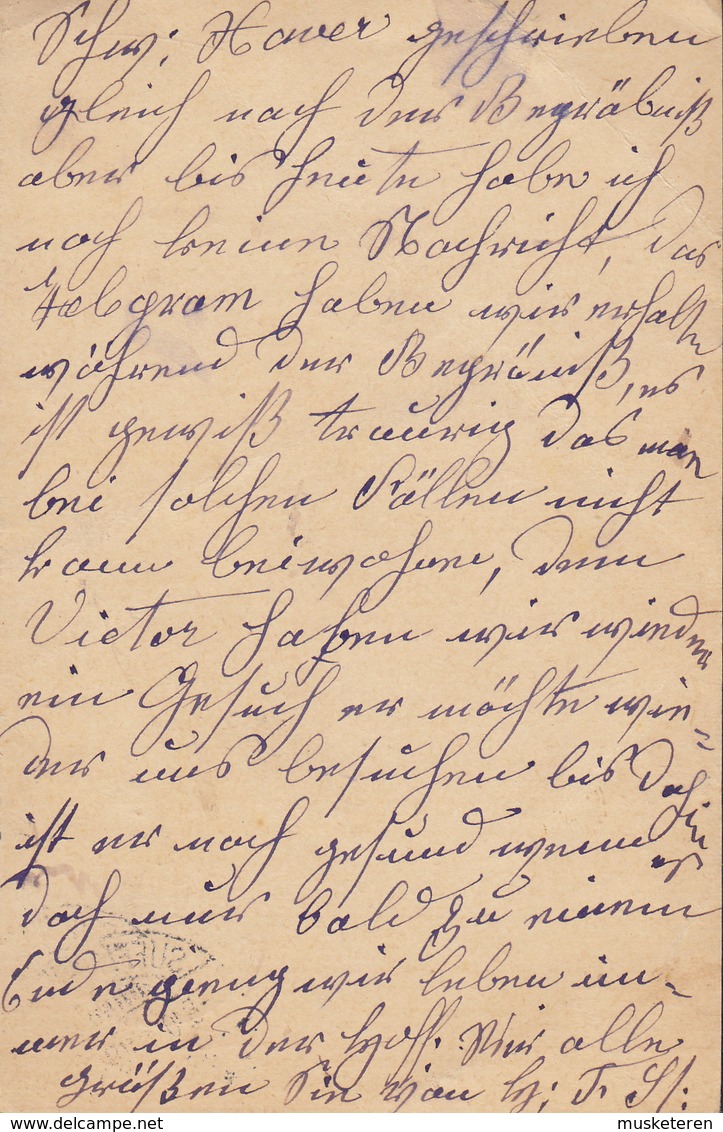 Schw: Xaver geschrieben
gleich nach der Begräbniß
aber bis heute habe ich
noch keine Nachricht, das
telegram haben wir erhalten
während der Begräniß, es
ist gewiß traurig das man
bei solchen Fällen nicht
kann beiwohnen, dem
Victor haben wir wieder
ein Gesuch er möchte wie-
der uns besuchen bis dahin
ist er noch gesund wenn es
doch nur bald zu einem
Ende gieng wir leben im-
mer in der Hoff. Wir alle
grüßen Sie von
musketeren